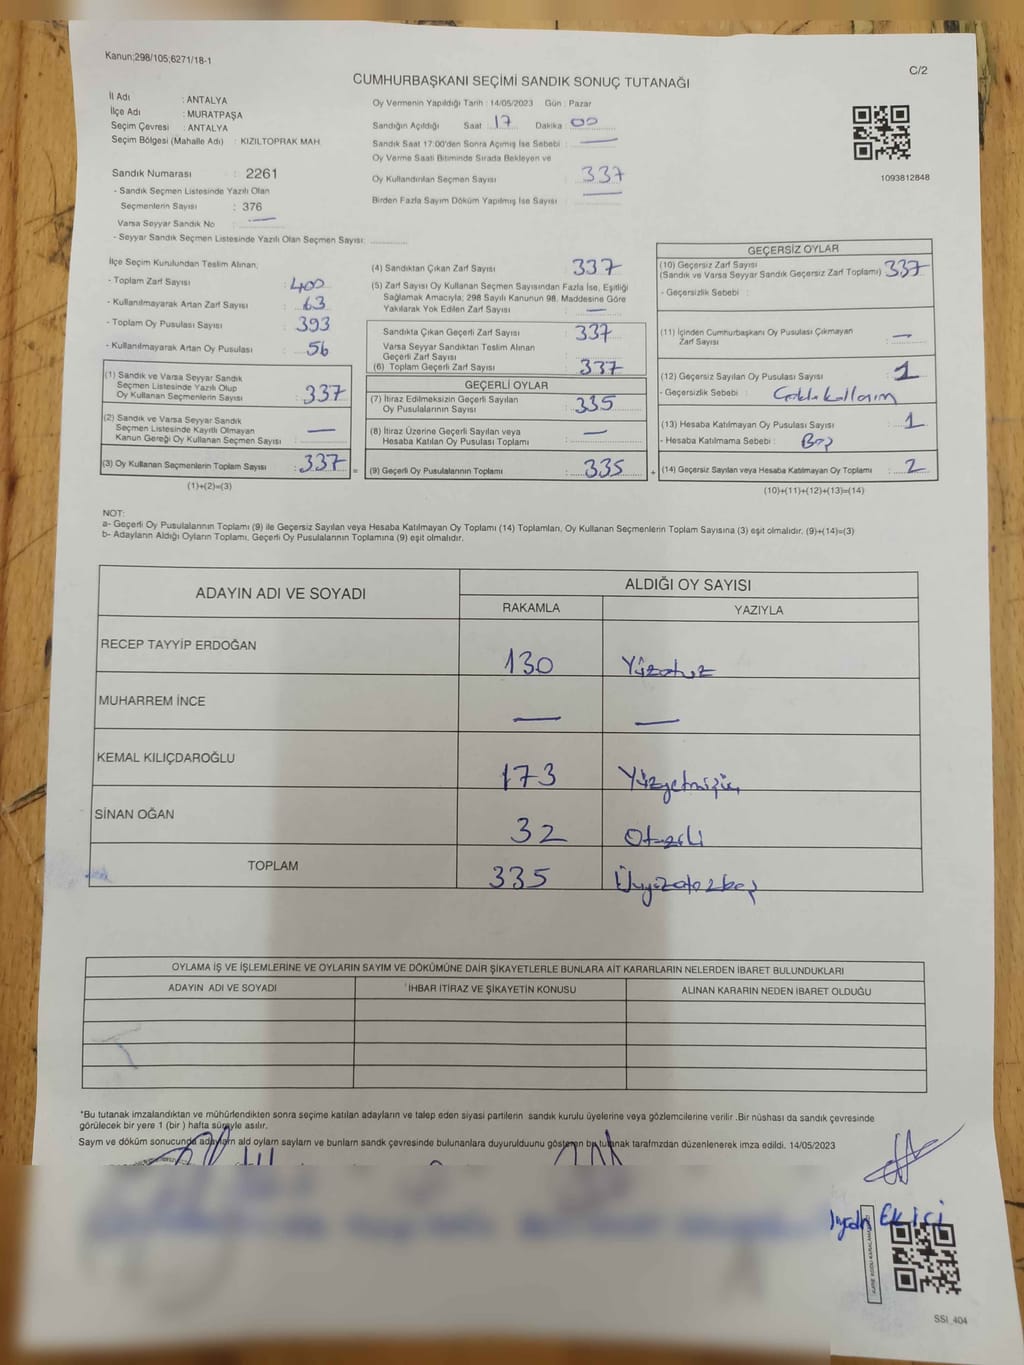 Kanun;298/105;6271/18-1
C/2
CUMHURBAŞKANI SEÇİMİ SANDIK SONUÇ TUTANAĞI
İl Adı : ANTALYA
İlçe Adı : MURATPAŞA
Seçim Çevresi : ANTALYA
Seçim Bölgesi (Mahalle Adı) : KIZILTOPRAK MAH.
Oy Vermenin Yapıldığı Tarih : 14/05/2023 Gün : Pazar
Sandığın Açıldığı Saat : 17 Dakika 00
Sandık Saat 17:00'den Sonra Açımış İse Sebebi : —
Oy Verme Saati Bitiminde Sırada Bekleyen ve
Oy Kullandırılan Seçmen Sayısı : 337
Birden Fazla Sayım Döküm Yapılmış İse Sayısı : —
1093812848
Sandık Numarası : 2261
- Sandık Seçmen Listesinde Yazılı Olan
Seçmenlerin Sayısı : 376
Varsa Seyyar Sandık No : —
- Seyyar Sandık Seçmen Listesinde Yazılı Olan Seçmen Sayısı:
İlçe Seçim Kurulundan Teslim Alınan;
- Toplam Zarf Sayısı : 400
- Kullanılmayarak Artan Zarf Sayısı : 63
- Toplam Oy Pusulası Sayısı : 393
- Kullanılmayarak Artan Oy Pusulası : 56
(1) Sandık ve Varsa Seyyar Sandık
Seçmen Listesinde Yazılı Olup
Oy Kullanan Seçmenlerin Sayısı : 337
(2) Sandık ve Varsa Seyyar Sandık
Seçmen Listesinde Kayıtlı Olmayan
Kanun Gereği Oy Kullanan Seçmen Sayısı : —
(3) Oy Kullanan Seçmenlerin Toplam Sayısı : 337 =
(1)+(2)=(3)
(4) Sandıktan Çıkan Zarf Sayısı : 337
(5) Zarf Sayısı Oy Kullanan Seçmen Sayısından Fazla İse, Eşitliği
Sağlamak Amacıyla; 298 Sayılı Kanunun 98. Maddesine Göre
Yakılarak Yok Edilen Zarf Sayısı : —
Sandıkta Çıkan Geçerli Zarf Sayısı : 337
Varsa Seyyar Sandıktan Teslim Alınan
Geçerli Zarf Sayısı :
(6) Toplam Geçerli Zarf Sayısı : 337
GEÇERLİ OYLAR
(7) İtiraz Edilmeksizin Geçerli Sayılan
Oy Pusulalarının Sayısı : 335
(8) İtiraz Üzerine Geçerli Sayılan veya
Hesaba Katılan Oy Pusulası Toplamı : —
(9) Geçerli Oy Pusulalarının Toplamı : 335 +
GEÇERSİZ OYLAR
(10) Geçersiz Zarf Sayısı
(Sandık ve Varsa Seyyar Sandık Geçersiz Zarf Toplamı) : 337
- Geçersizlik Sebebi :
(11) İçinden Cumhurbaşkanı Oy Pusulası Çıkmayan
Zarf Sayısı : —
(12) Geçersiz Sayılan Oy Pusulası Sayısı : 1
- Geçersizlik Sebebi :
(13) Hesaba Katılmayan Oy Pusulası Sayısı : 1
- Hesaba Katılmama Sebebi : Boş
(14) Geçersiz Sayılan veya Hesaba Katılmayan Oy Toplamı : 2
(10)+(11)+(12)+(13)=(14)
NOT:
a- Geçerli Oy Pusulalarının Toplamı (9) ile Geçersiz Sayılan veya Hesaba Katılmayan Oy Toplamı (14) Toplamları, Oy Kullanan Seçmenlerin Toplam Sayısına (3) eşit olmalıdır. (9)+(14)=(3)
b- Adayların Aldığı Oyların Toplamı, Geçerli Oy Pusulalarının Toplamına (9) eşit olmalıdır.
ADAYIN ADI VE SOYADI
ALDIĞI OY SAYISI
RAKAMLA YAZIYLA
RECEP TAYYİP ERDOĞAN 130 Yüzotuz
MUHARREM İNCE — —
KEMAL KILIÇDAROĞLU 173 Yüzyetmişüç
SİNAN OĞAN 32 Otuziki
TOPLAM 335 Üçyüzotuzbeş
OYLAMA İŞ VE İŞLEMLERİNE VE OYLARIN SAYIM VE DÖKÜMÜNE DAİR ŞİKAYETLERLE BUNLARA AİT KARARLARIN NELERDEN İBARET BULUNDUKLARI
ADAYIN ADI VE SOYADI İHBAR İTİRAZ VE ŞİKAYETİN KONUSU ALINAN KARARIN NEDEN İBARET OLDUĞU
*Bu tutanak imzalandıktan ve mühürlendikten sonra seçime katılan adayların ve talep eden siyasi partilerin sandık kurulu üyelerine veya gözlemcilerine verilir .Bir nüshası da sandık çevresinde
görülecek bir yere 1 (bir ) hafta süreyle asılır.
Sayım ve döküm sonucunda adayların ald oyların sayların ve bunların sandk çevresinde bulunanlara duyurulduunu gösteren bu tutanak tarafımzdan düzenlenerek imza edildi. 14/05/2023
Ekici
SSİ_404